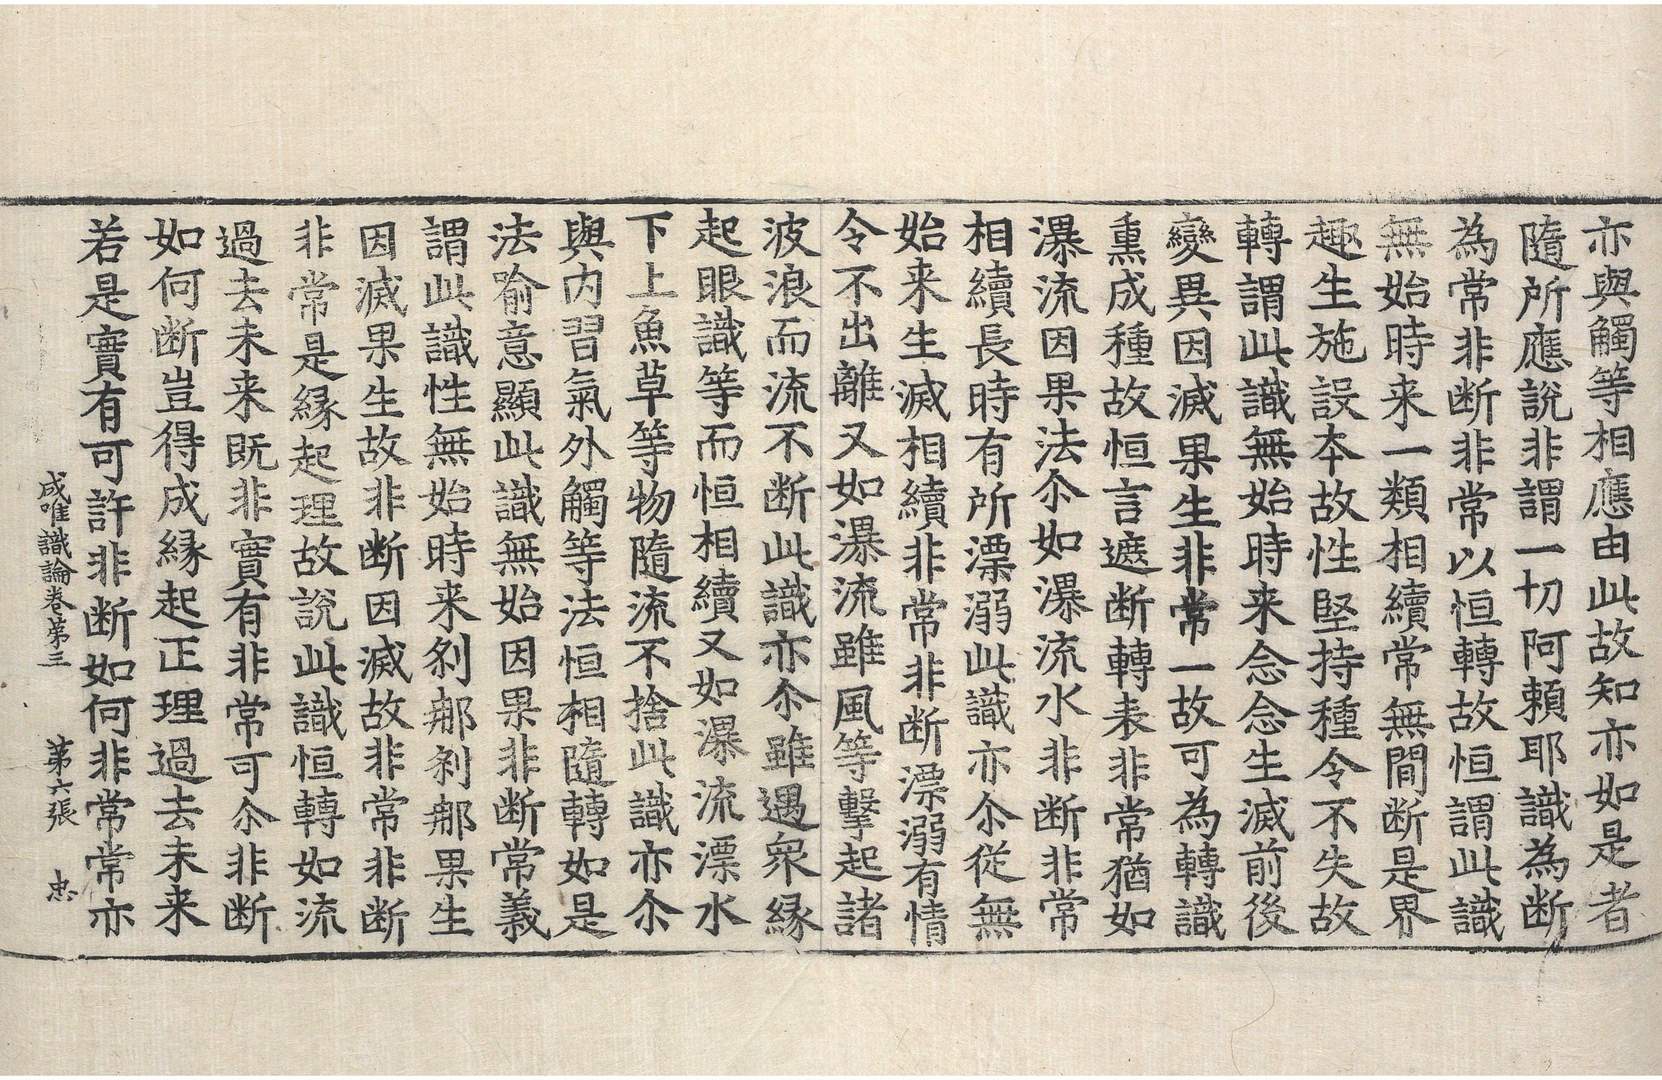 亦與觸等相應由此故知亦如是者
隨所應說非謂一切阿賴耶識為断
為常非断非常以恒轉故恒謂此識
無始時来一類相續常無間断是界
趣生施設本故性堅持種令不失故
轉謂此識無始時来念念生滅前後
變異因滅果生非常一故可為轉識
熏成種故恒言遮断轉表非常猶如
瀑流因果法尒如瀑流水非断非常
相續長時有所漂溺此識亦尒從無
始来生滅相續非常非断漂溺有情
令不出離又如瀑流雖風等擊起諸
波浪而流不断此識亦尒雖遇眾緣
起眼識等而恒相續又如瀑流漂水
下上魚草等物隨流不捨此識亦尒
與内習氣外觸等法恒相隨轉如是
法喻意顯此識無始因果非断常義
謂此識性無始時来剎那剎那果生
因滅果生故非断因滅故非常非断
非常是緣起理故說此識恒轉如流
過去未来既非實有非常可尒非断
如何断豈得成緣起正理過去未来
若是實有可許非断如何非常常亦
成唯識論卷第三 第六張 忠